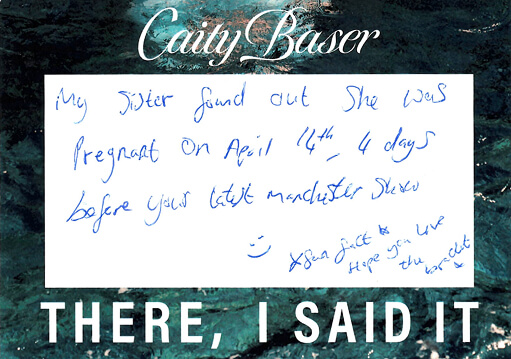 Caity Baser
My sister found out she was
Pregnant on April 14th, 4 days
before your latest manchester show
:)
*fun fact*
Hope you love
the bracelet
THERE, I SAID IT